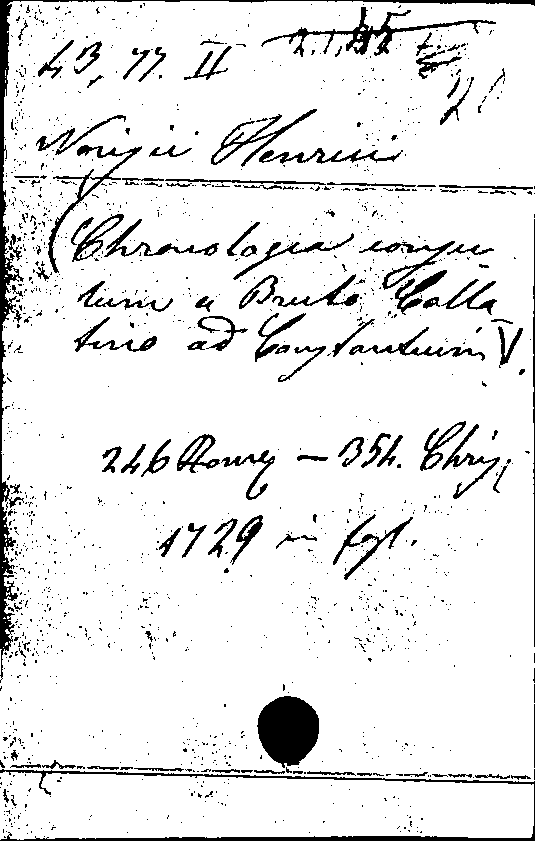 43, 77. II
2.1,
20
Norisii Henrici
(Chronologia consu
lum a Bruto Colla
tino ad Constantium V.
246 Romæ — 354. Chris.
1729 in fol.